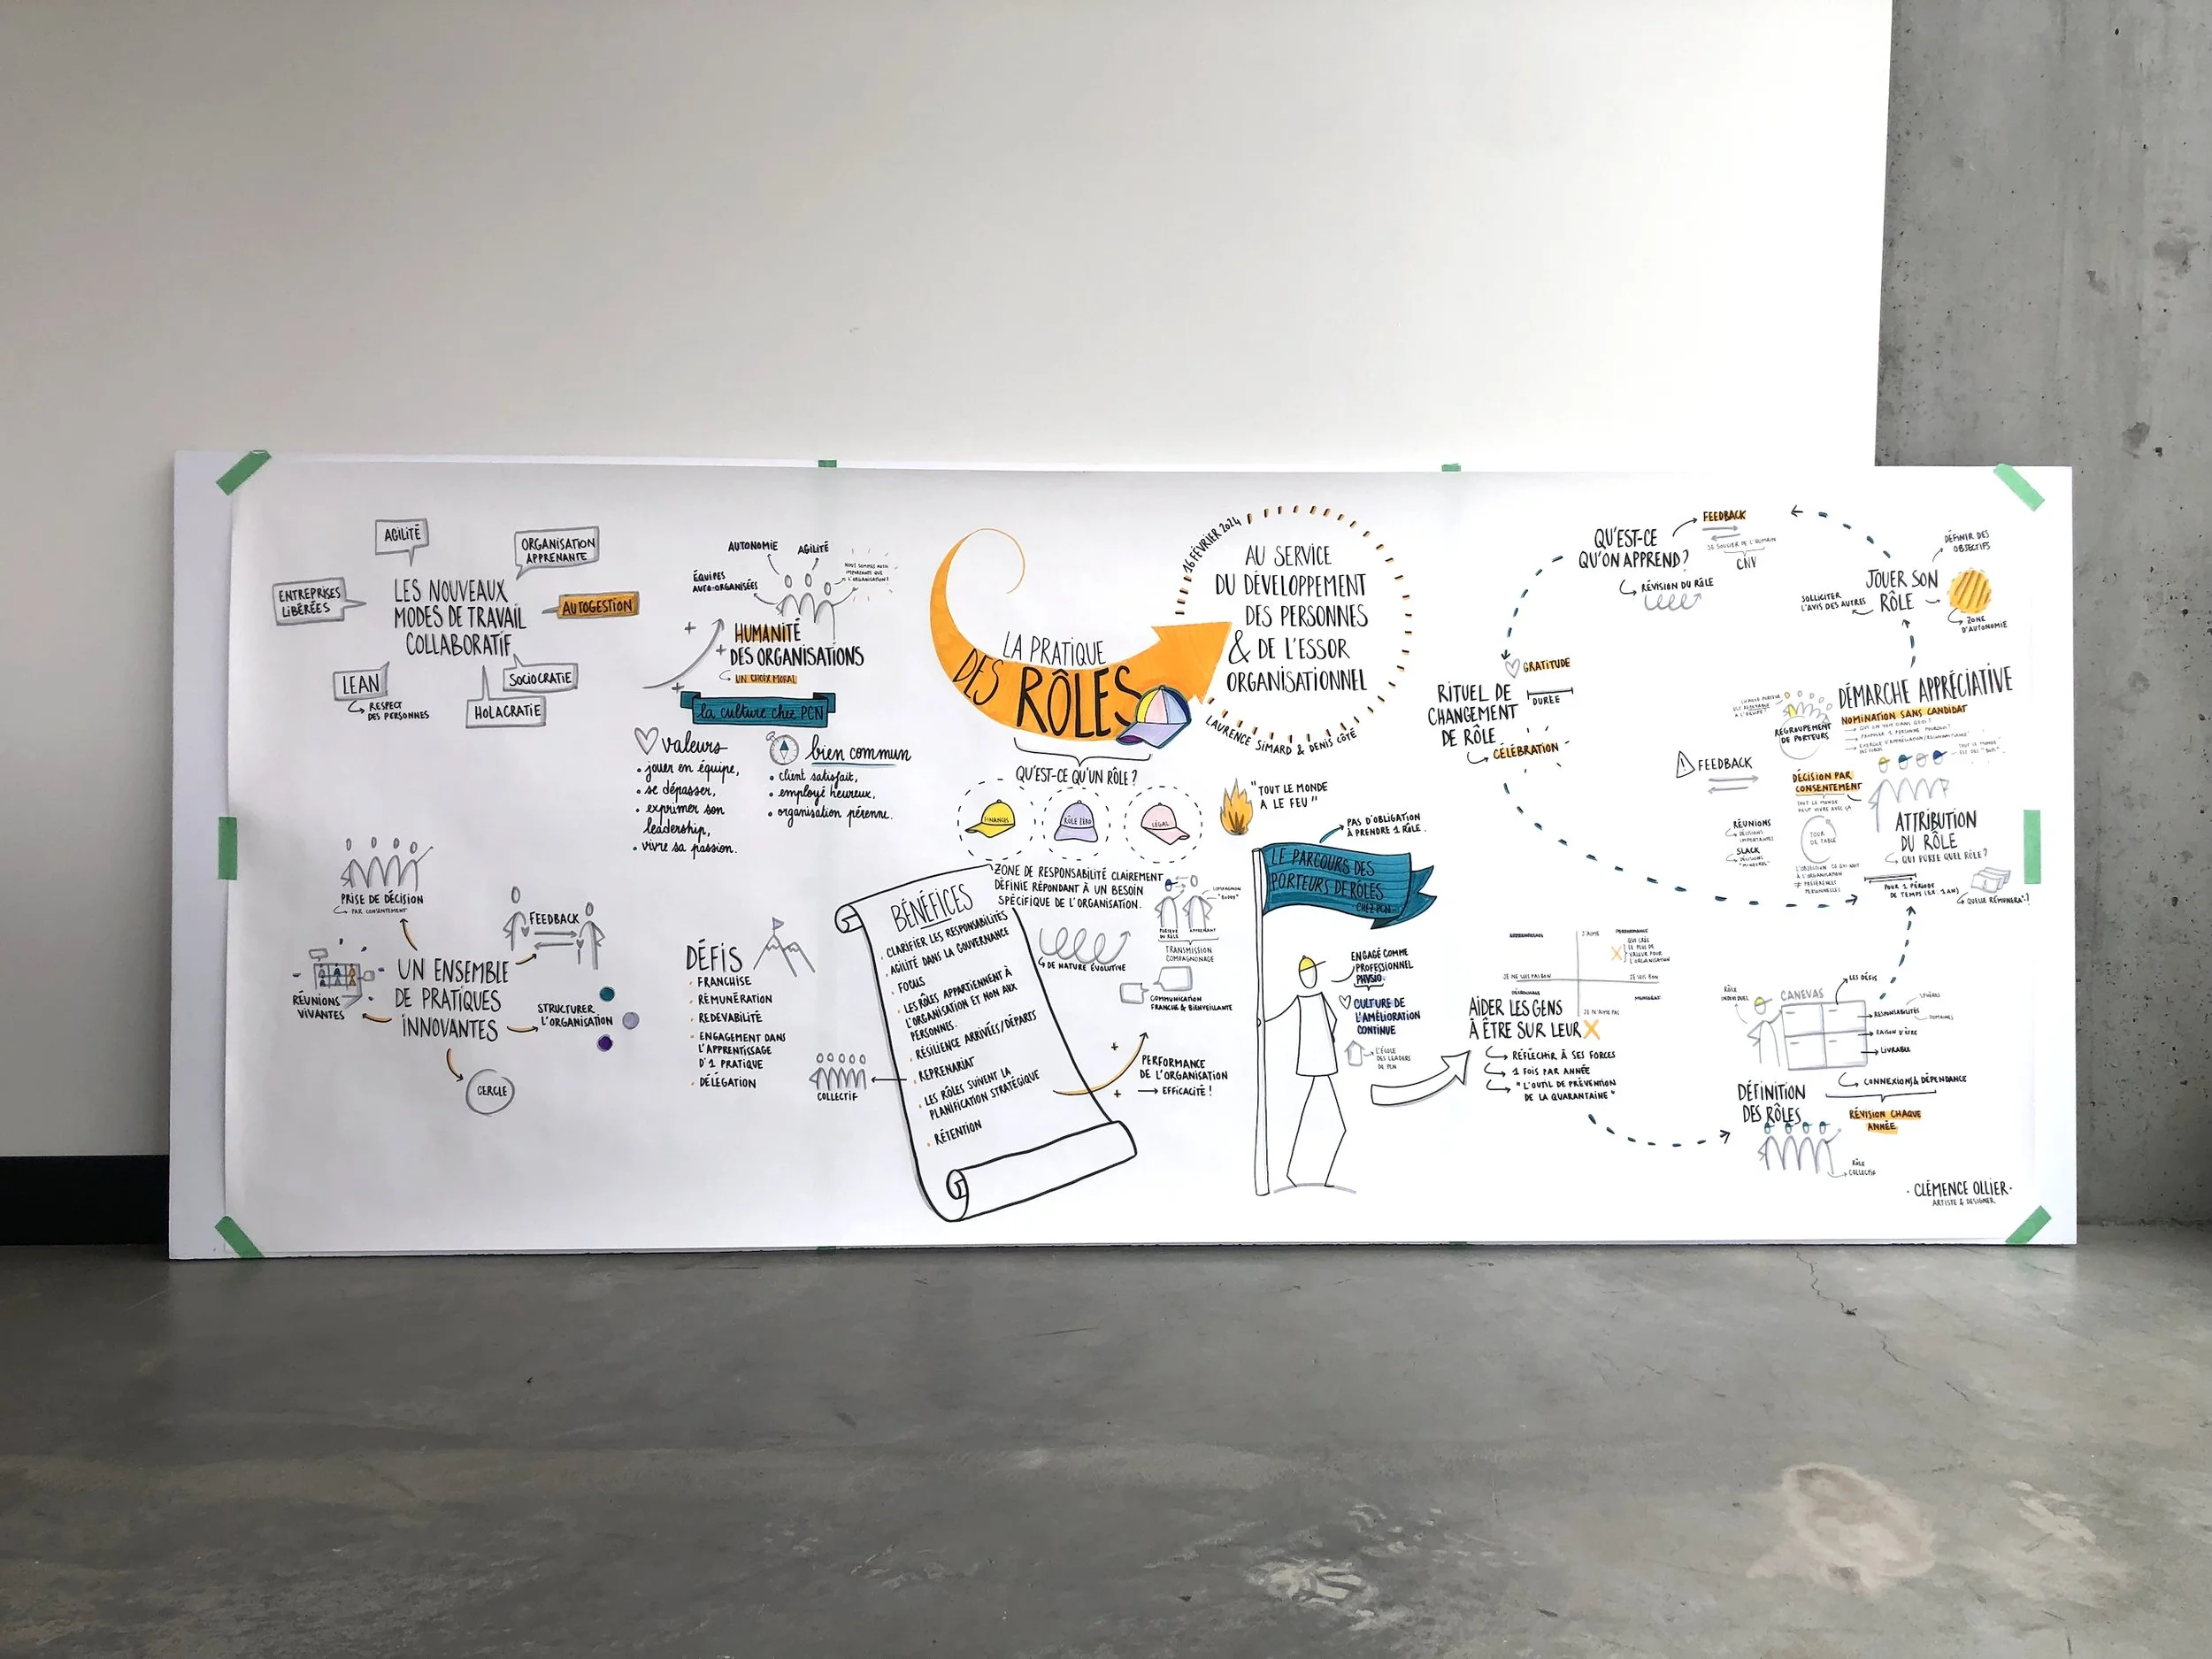 AGILITÉ
ORGANISATION
APPRENANTE
ENTREPRISES
LIBÉRÉES
LES NOUVEAUX
MODES DE TRAVAIL
COLLABORATIF
AUTOGESTION
LEAN
RESPECT
DES PERSONNES
SOCIOCRATIE
HOLACRATIE
AUTONOMIE
AGILITÉ
ÉQUIPES
AUTO-ORGANISÉES
NOUS SOMMES AUSSI
IMPORTANTS QUE
L'ORGANISATION!
HUMANITÉ
DES ORGANISATIONS
UN CHOIX MORAL
la culture chez PCN
valeurs
• jouer en équipe,
• se dépasser,
• exprimer son
leadership,
• vivre sa passion.
bien commun
• client satisfait,
• employé heureux,
• organisation pérenne.
PRISE DE DÉCISION
PAR CONSENTEMENT
FEEDBACK
RÉUNIONS
VIVANTES
UN ENSEMBLE
DE PRATIQUES
INNOVANTES
STRUCTURER
L'ORGANISATION
CERCLE
DÉFIS
• FRANCHISE
• RÉMUNÉRATION
• REDEVABILITÉ
• ENGAGEMENT DANS
L'APPRENTISSAGE
D'1 PRATIQUE
• DÉLÉGATION
LA PRATIQUE
DES RÔLES
16 FÉVRIER 2024
AU SERVICE
DU DÉVELOPPEMENT
DES PERSONNES
& DE L'ESSOR
ORGANISATIONNEL
LAURENCE SIMARD & DENIS CÔTÉ
QU'EST-CE QU'UN RÔLE?
FINANCES
RÔLE ZÉRO
LÉGAL
"TOUT LE MONDE
A LE FEU"
ZONE DE RESPONSABILITÉ CLAIREMENT
DÉFINIE RÉPONDANT À UN BESOIN
SPÉCIFIQUE DE L'ORGANISATION.
BÉNÉFICES
• CLARIFIER LES RESPONSABILITÉS
• AGILITÉ DANS LA GOUVERNANCE
• FOCUS
• LES RÔLES APPARTIENNENT À
L'ORGANISATION ET NON AUX
PERSONNES.
• RÉSILIENCE ARRIVÉES/DÉPARTS
• REPRENARIAT
• LES RÔLES SUIVENT LA
PLANIFICATION STRATÉGIQUE
• RÉTENTION
COLLECTIF
DE NATURE ÉVOLUTIVE
COMPAGNON
"BUDDY"
PORTEUR
DU RÔLE
APPRENANT
TRANSMISSION
COMPAGNONAGE
COMMUNICATION
FRANCHE & BIENVEILLANTE
PERFORMANCE
DE L'ORGANISATION
→ EFFICACITÉ!
PAS D'OBLIGATION
À PRENDRE 1 RÔLE.
LE PARCOURS DES
PORTEURS DE RÔLES
CHEZ PCN
ENGAGÉ COMME
PROFESSIONNEL
PHYSIO.
CULTURE DE
L'AMÉLIORATION
CONTINUE
L'ÉCOLE
DES LEADERS
DE PCN
J'AIME
QUI CRÉE
LE PLUS DE
VALEUR POUR
L'ORGANISATION
JE NE SUIS PAS BON
JE SUIS BON
JE N'AIME PAS
AIDER LES GENS
À ÊTRE SUR LEUR X
RÉFLÉCHIR À SES FORCES
1 FOIS PAR ANNÉE
"L'OUTIL DE PRÉVENTION
DE LA QUARANTAINE"
RÔLE
INDIVIDUEL
CANEVAS
LES DÉFIS
RESPONSABILITÉS
DOMAINES
RAISON D'ÊTRE
LIVRABLE
CONNEXIONS & DÉPENDANCE
DÉFINITION
DES RÔLES
RÉVISION CHAQUE
ANNÉE
RÔLE
COLLECTIF
ATTRIBUTION
DU RÔLE
QUI PORTE QUEL RÔLE?
POUR 1 PÉRIODE
DE TEMPS (EX: 1 AN)
QUELLE RÉMUNÉRA°?
DÉMARCHE APPRÉCIATIVE
NOMINATION SANS CANDIDAT
REGROUPEMENT
DE PORTEURS
FEEDBACK
DÉCISION PAR
CONSENTEMENT
TOUT LE MONDE
PEUT VIVRE AVEC ÇA
TOUR
DE TABLE
RÉUNIONS
DÉCISIONS
IMPORTANTES
SLACK
DÉCISIONS
"MINEURES"
L'OBJECTION: CE QUI NUIT
À L'ORGANISATION
≠ PRÉFÉRENCES
PERSONNELLES
JOUER SON
RÔLE
DÉFINIR DES
OBJECTIFS
SOLLICITER
L'AVIS DES AUTRES
ZONE
D'AUTONOMIE
QU'EST-CE
QU'ON APPREND?
FEEDBACK
SE SOUCIER DE L'HUMAIN
CNV
RÉVISION DU RÔLE
RITUEL DE
CHANGEMENT
DE RÔLE
GRATITUDE
DURÉE
CÉLÉBRATION
• CLÉMENCE OLLIER •
ARTISTE & DESIGNER